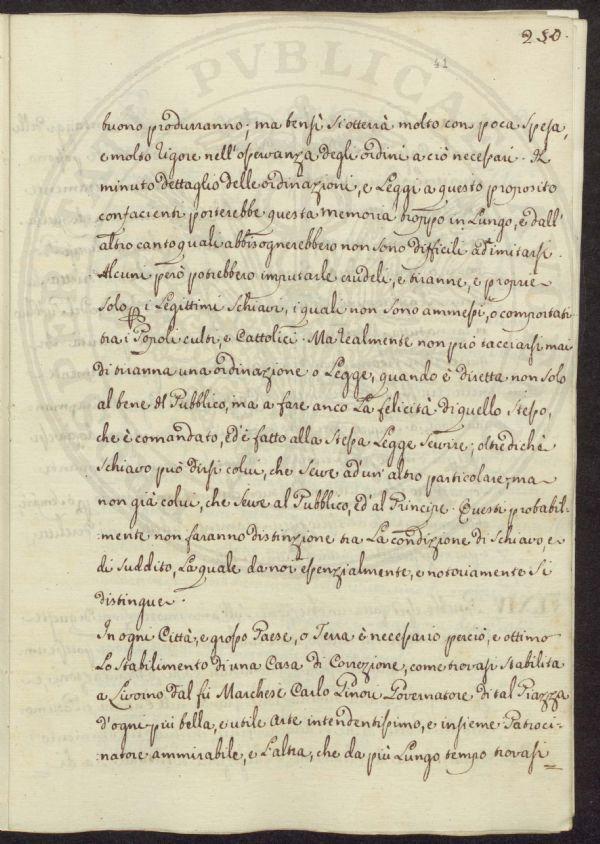 250.
41
PVBLICA
buono produrranno; ma bensì s'otterrà molto con poca spesa,
e molto rigore nell'osservanza degli ordini a ciò necessari. Il
minuto dettaglio delle ordinazioni, e Leggi a questo proposito
confacienti porterebbe questa memoria troppo in lungo, e dall'
altro canto quali abbisognerebbero non sono difficili ad'imitarsi.
Alcuni però potrebbero imputarle crudeli, e tiranne, e proprie
solo p i Legittimi Schiavi, i quali non sono ammessi, o comportati
tra i Popoli culti, e Cattolici. Ma realmente non può tacciarsi mai
di tiranna una ordinazione o Legge, quando è diretta non solo
al bene del Pubblico, ma a fare anco la felicità di quello stesso,
che è comandato, ed'è fatto alla stessa Legge servire; oltredichè
schiavo può dirsi colui, che serve ad'un'altro particolare, ma
non già colui, che serve al Pubblico, ed'al Principe. Questi probabil-
mente non faranno distinzione tra la condizione di schiavo, e
di suddito, la quale da noi essenzialmente, e notoriamente si
distingue.
In ogni Città, e grosso Paese, o Terra è necessario perciò, e ottimo
lo stabilimento di una Casa di Correzione, come trovasi stabilita
a Livorno dal fù Marchese Carlo Ginori Governatore di tal Piazza
d'ogni più bella, e utile arte intendentissimo, e insieme Patroci-
natore ammirabile, e l'altra, che da più lungo tempo trovasi